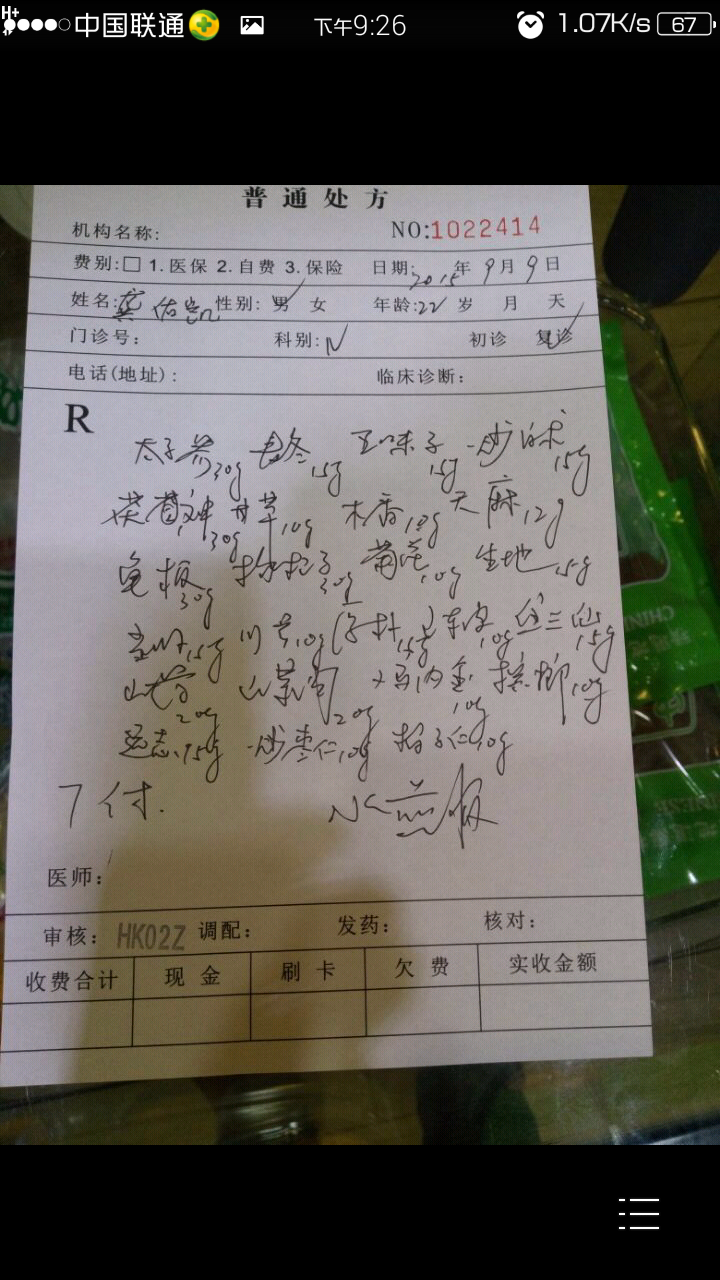 中国联通 下午9:26 1.07K/s 67
普通处方
机构名称: NO:1022414
费别:□ 1.医保 2.自费 3.保险 日期: 2015年9月9日
姓名: 龚佑 性别: 男 女 年龄:22岁 月 天
门诊号: 科别: 初诊 复诊
电话(地址): 临床诊断:
R
太子参30g 麦冬15g 五味子15g 炒白术15g
茯苓30g 甘草10g 木香10g 天麻12g
龟板30g 枸杞子30g 菖蒲10g 生地15g
当归15g 川芎10g 15g 10g 三仙15g
山药20g 山茱肉20g 鸡内金10g 槟榔10g
远志15g 炒枣仁10g 柏子仁10g
7付. 水煎服
医师:
审核: HK02Z 调配: 发药: 核对:
收费合计 现金 刷卡 欠费 实收金额
CHIN
中
INESE